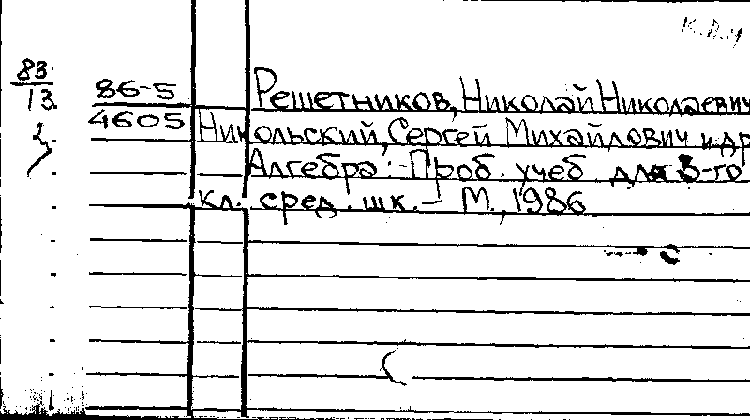 К.В.У
83
13
86-5
4605
Решетников, Николай Николаевич
Никольский, Сергей Михайлович и др
Алгебра: Проб. учеб для 8-го
кл. сред. шк. – М., 1986